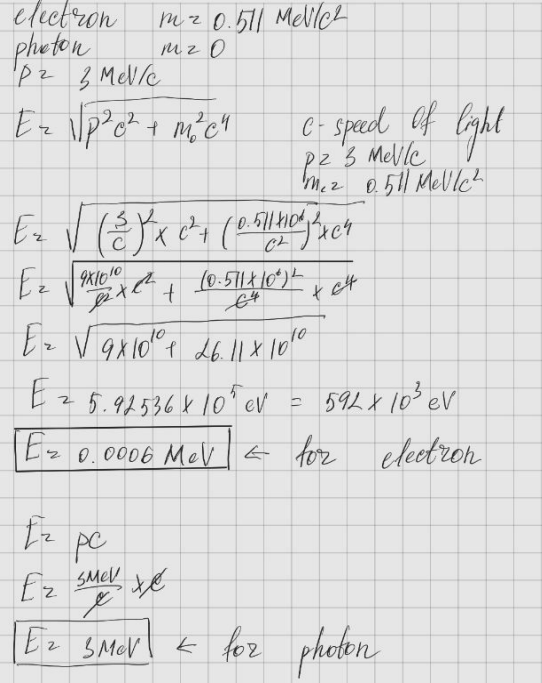 electron m = 0.511 MeV/c²
photon m = 0
p = 3 MeV/c
E = √(p²c² + m₀²c⁴)
c - speed of light
p = 3 MeV/c
mₑ = 0.511 MeV/c²
E = √((3/c)² × c² + (0.511×10⁶/c²)² × c⁴)
E = √(9×10¹⁰/c² × c² + (0.511×10⁶)²/c⁴ × c⁴)
E = √(9×10¹⁰ + 26.11×10¹⁰)
E = 5.92536 × 10⁵ eV = 592 × 10³ eV
E = 0.0006 MeV ← for electron
E = pc
E = 3MeV/c × c
E = 3MeV ← for photon